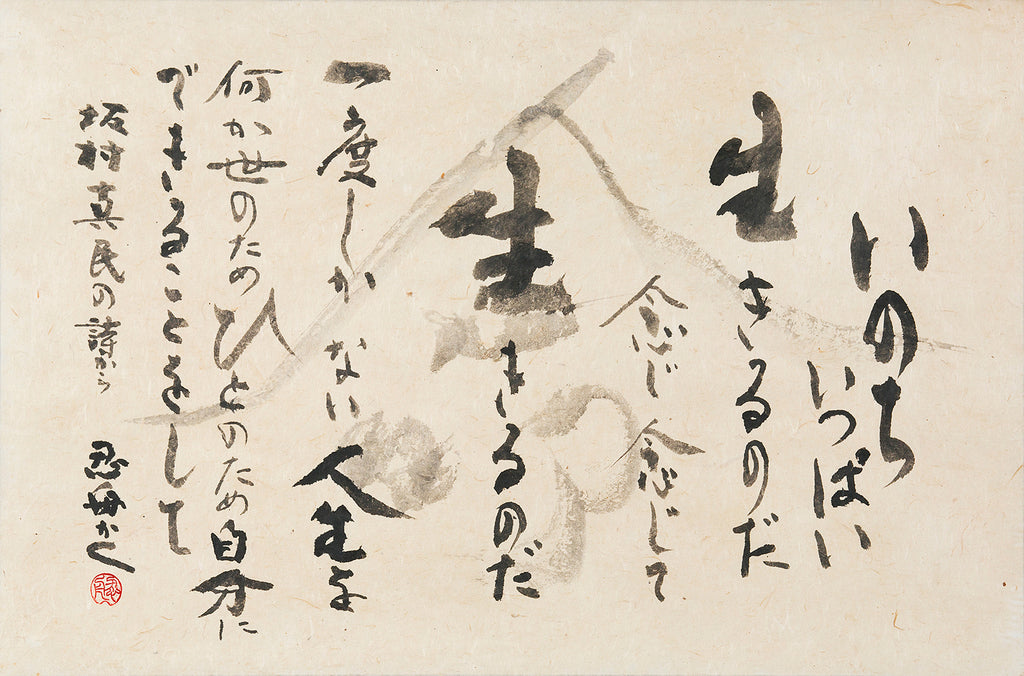 いのち
いっぱい
生きるのだ
念じ念じて
生きるのだ
一度しかない人生を
何か世のためひとのため自分に
できることをして
坂村真民の詩から
忍舟かく